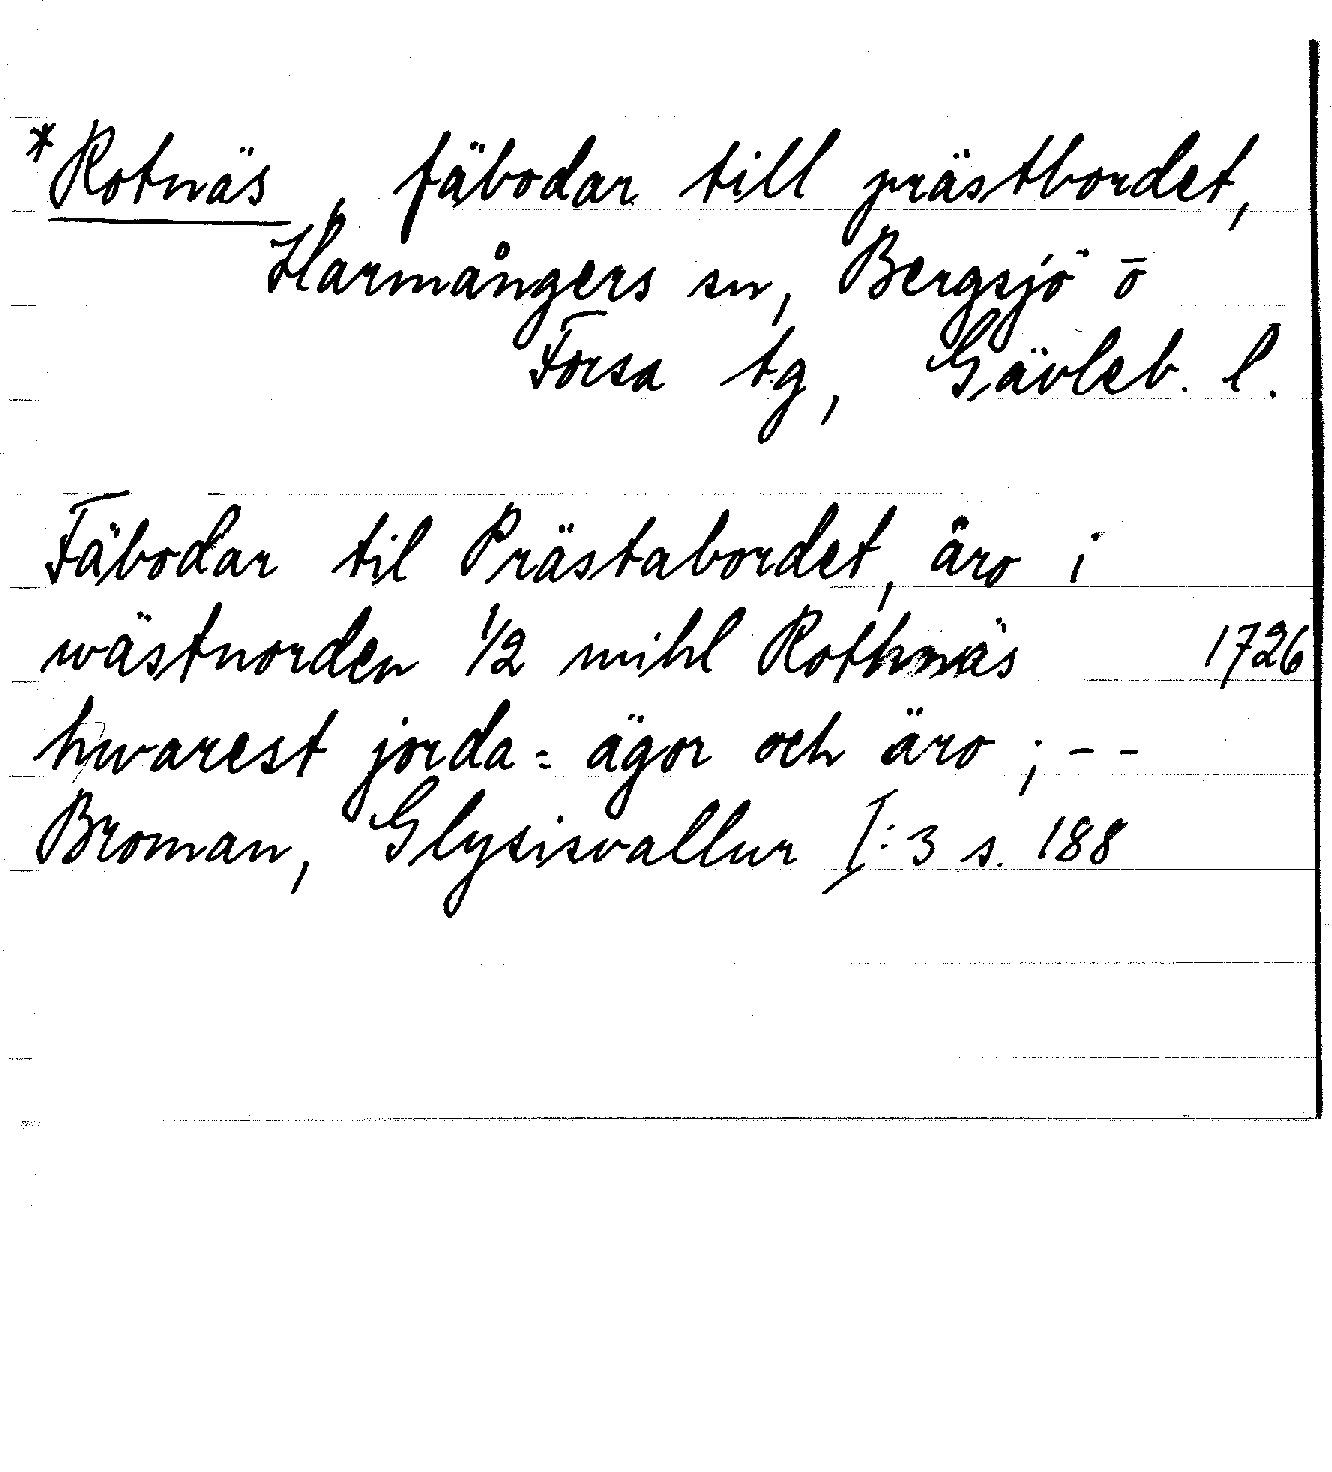 *Rotnäs, fäbodar till prästbordet,
Harmångers sn, Bergsjö o
Forsa tg, Gävleb. l.
Fäbodar til Prästabordet, äro i
wästnorden 1/2 mihl Rothnäs 1726
hwarest jorda= ägor och äro ; - -
Broman, Glysisvallur I:3 s. 188